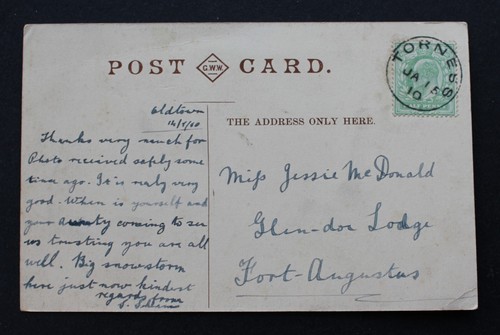 POST G.W.W. CARD.
THE ADDRESS ONLY HERE.
TORNESS
JA 15
10
Oldtown
Thanks very much for
Photo received safely some
time ago. It is realy very
good. When is yourself and
your coming to see
us trusting you are all
well. Big snowstorm
here just now kindest
regards from
Miss Jessie McDonald
Glen-doe Lodge
Fort-Augustus